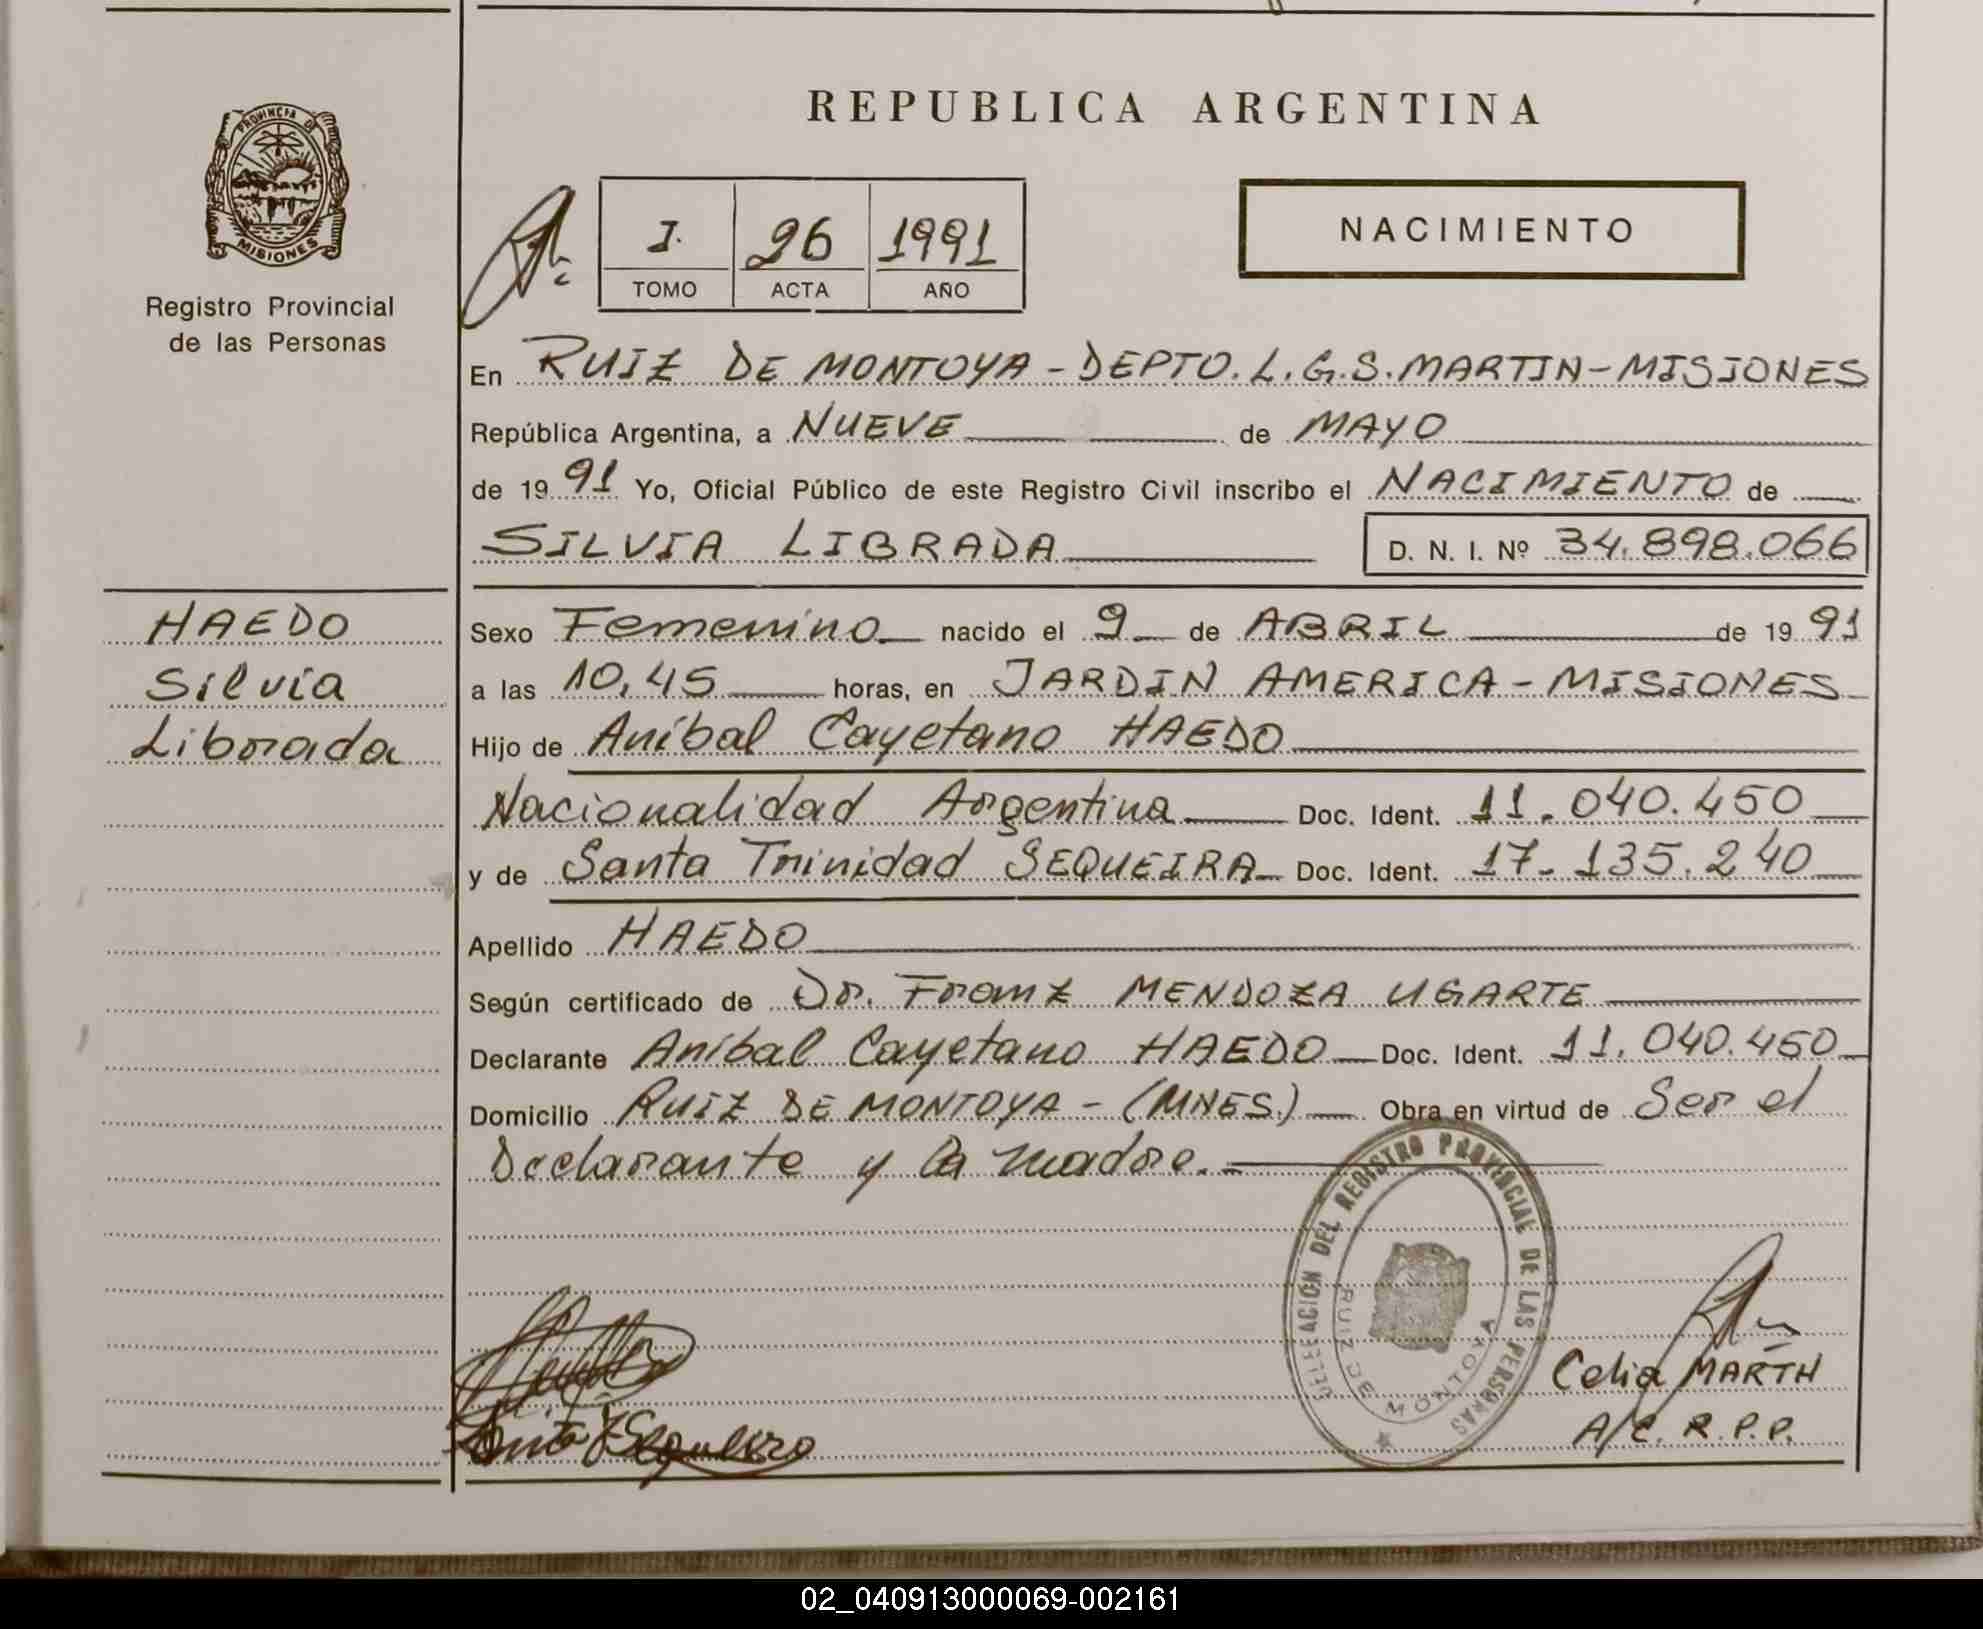 REPUBLICA ARGENTINA
PROVINCIA DE
MISIONES
Registro Provincial
de las Personas
I. 26 1991
TOMO ACTA AÑO
NACIMIENTO
En RUIZ DE MONTOYA - DEPTO. L.G.S. MARTIN - MISIONES
República Argentina, a NUEVE de MAYO
de 1991 Yo, Oficial Público de este Registro Civil inscribo el NACIMIENTO de
SILVIA LIBRADA D. N. I. Nº 34.898.066
HAEDO
Silvia
Librada
Sexo Femenino nacido el 9 de ABRIL de 1991
a las 10,45 horas, en JARDIN AMERICA - MISIONES
Hijo de Aníbal Cayetano HAEDO
Nacionalidad Argentina Doc. Ident. 11.040.450
y de Santa Trinidad SEQUEIRA Doc. Ident. 17.135.240
Apellido HAEDO
Según certificado de Dr. Franz MENDOZA UGARTE
Declarante Aníbal Cayetano HAEDO Doc. Ident. 11.040.450
Domicilio RUIZ DE MONTOYA - (MNES.) Obra en virtud de Ser el
Declarante y la madre.
DELEGACIÓN DEL REGISTRO PROVINCIAL DE LAS PERSONAS
RUIZ DE MONTOYA
Celia MARTH
A/C. R.P.P.
02_040913000069-002161